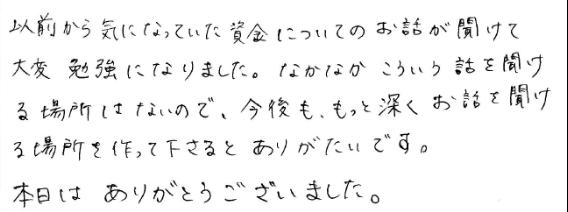 以前から気になっていた資金についてのお話が聞けて
大変勉強になりました。なかなかこういう話を聞け
る場所はないので、今後も、もっと深くお話を聞け
る場所を作って下さるとありがたいです。
本日はありがとうございました。